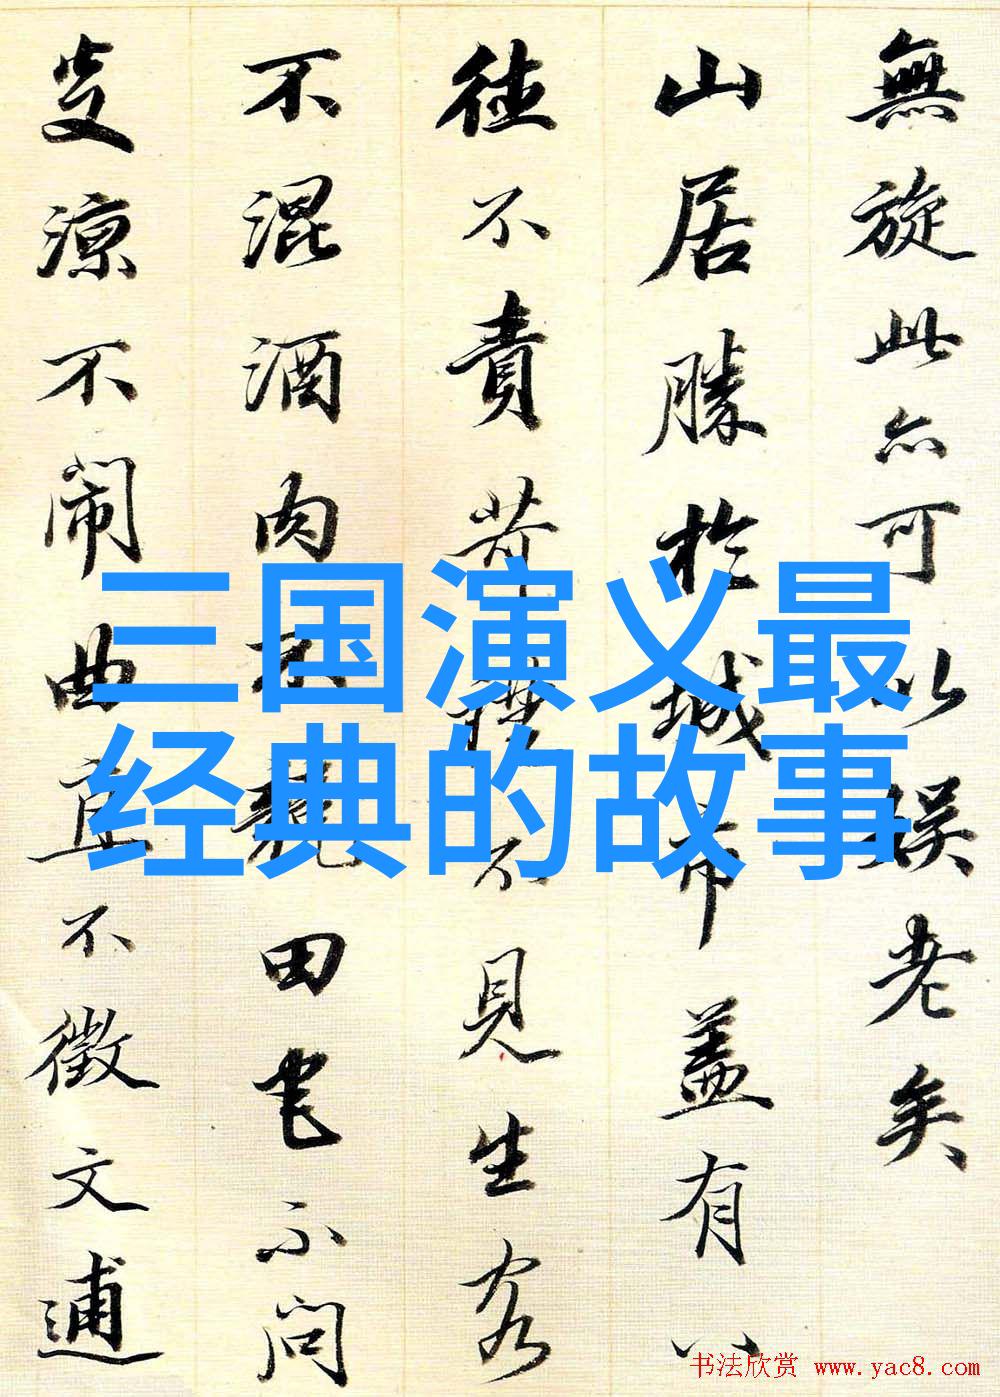 無旋此亦可以娱老矣
山居勝於城市蓋有八
德不責苛禮不見生客
不混酒肉不競田宅不問
炎涼不闹曲直不徵文逋
三国演义最
经典的故事
书法欣赏 www.yac8.com